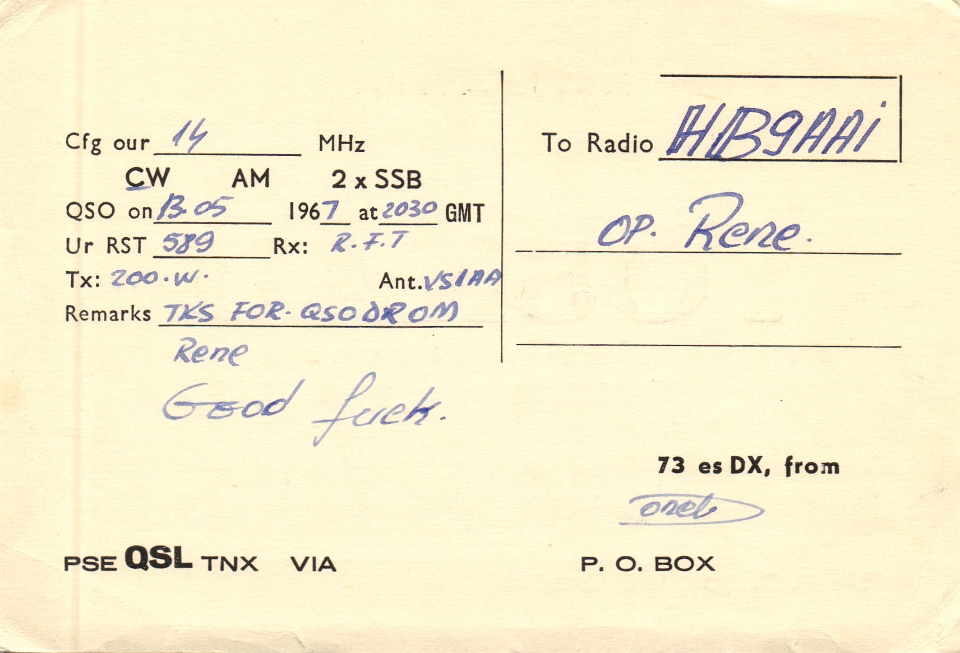 Cfg our 14 MHz
CW AM 2 x SSB
QSO on 13.05 1967 at 2030 GMT
Ur RST 589 Rx: R.F.T
Tx: 200.W. Ant. VS1AA
Remarks TKS FOR. QSO DR OM
Rene
Good luck.
To Radio HB9AAi
OP. Rene.
73 es DX, from
PSE QSL TNX VIA
P. O. BOX